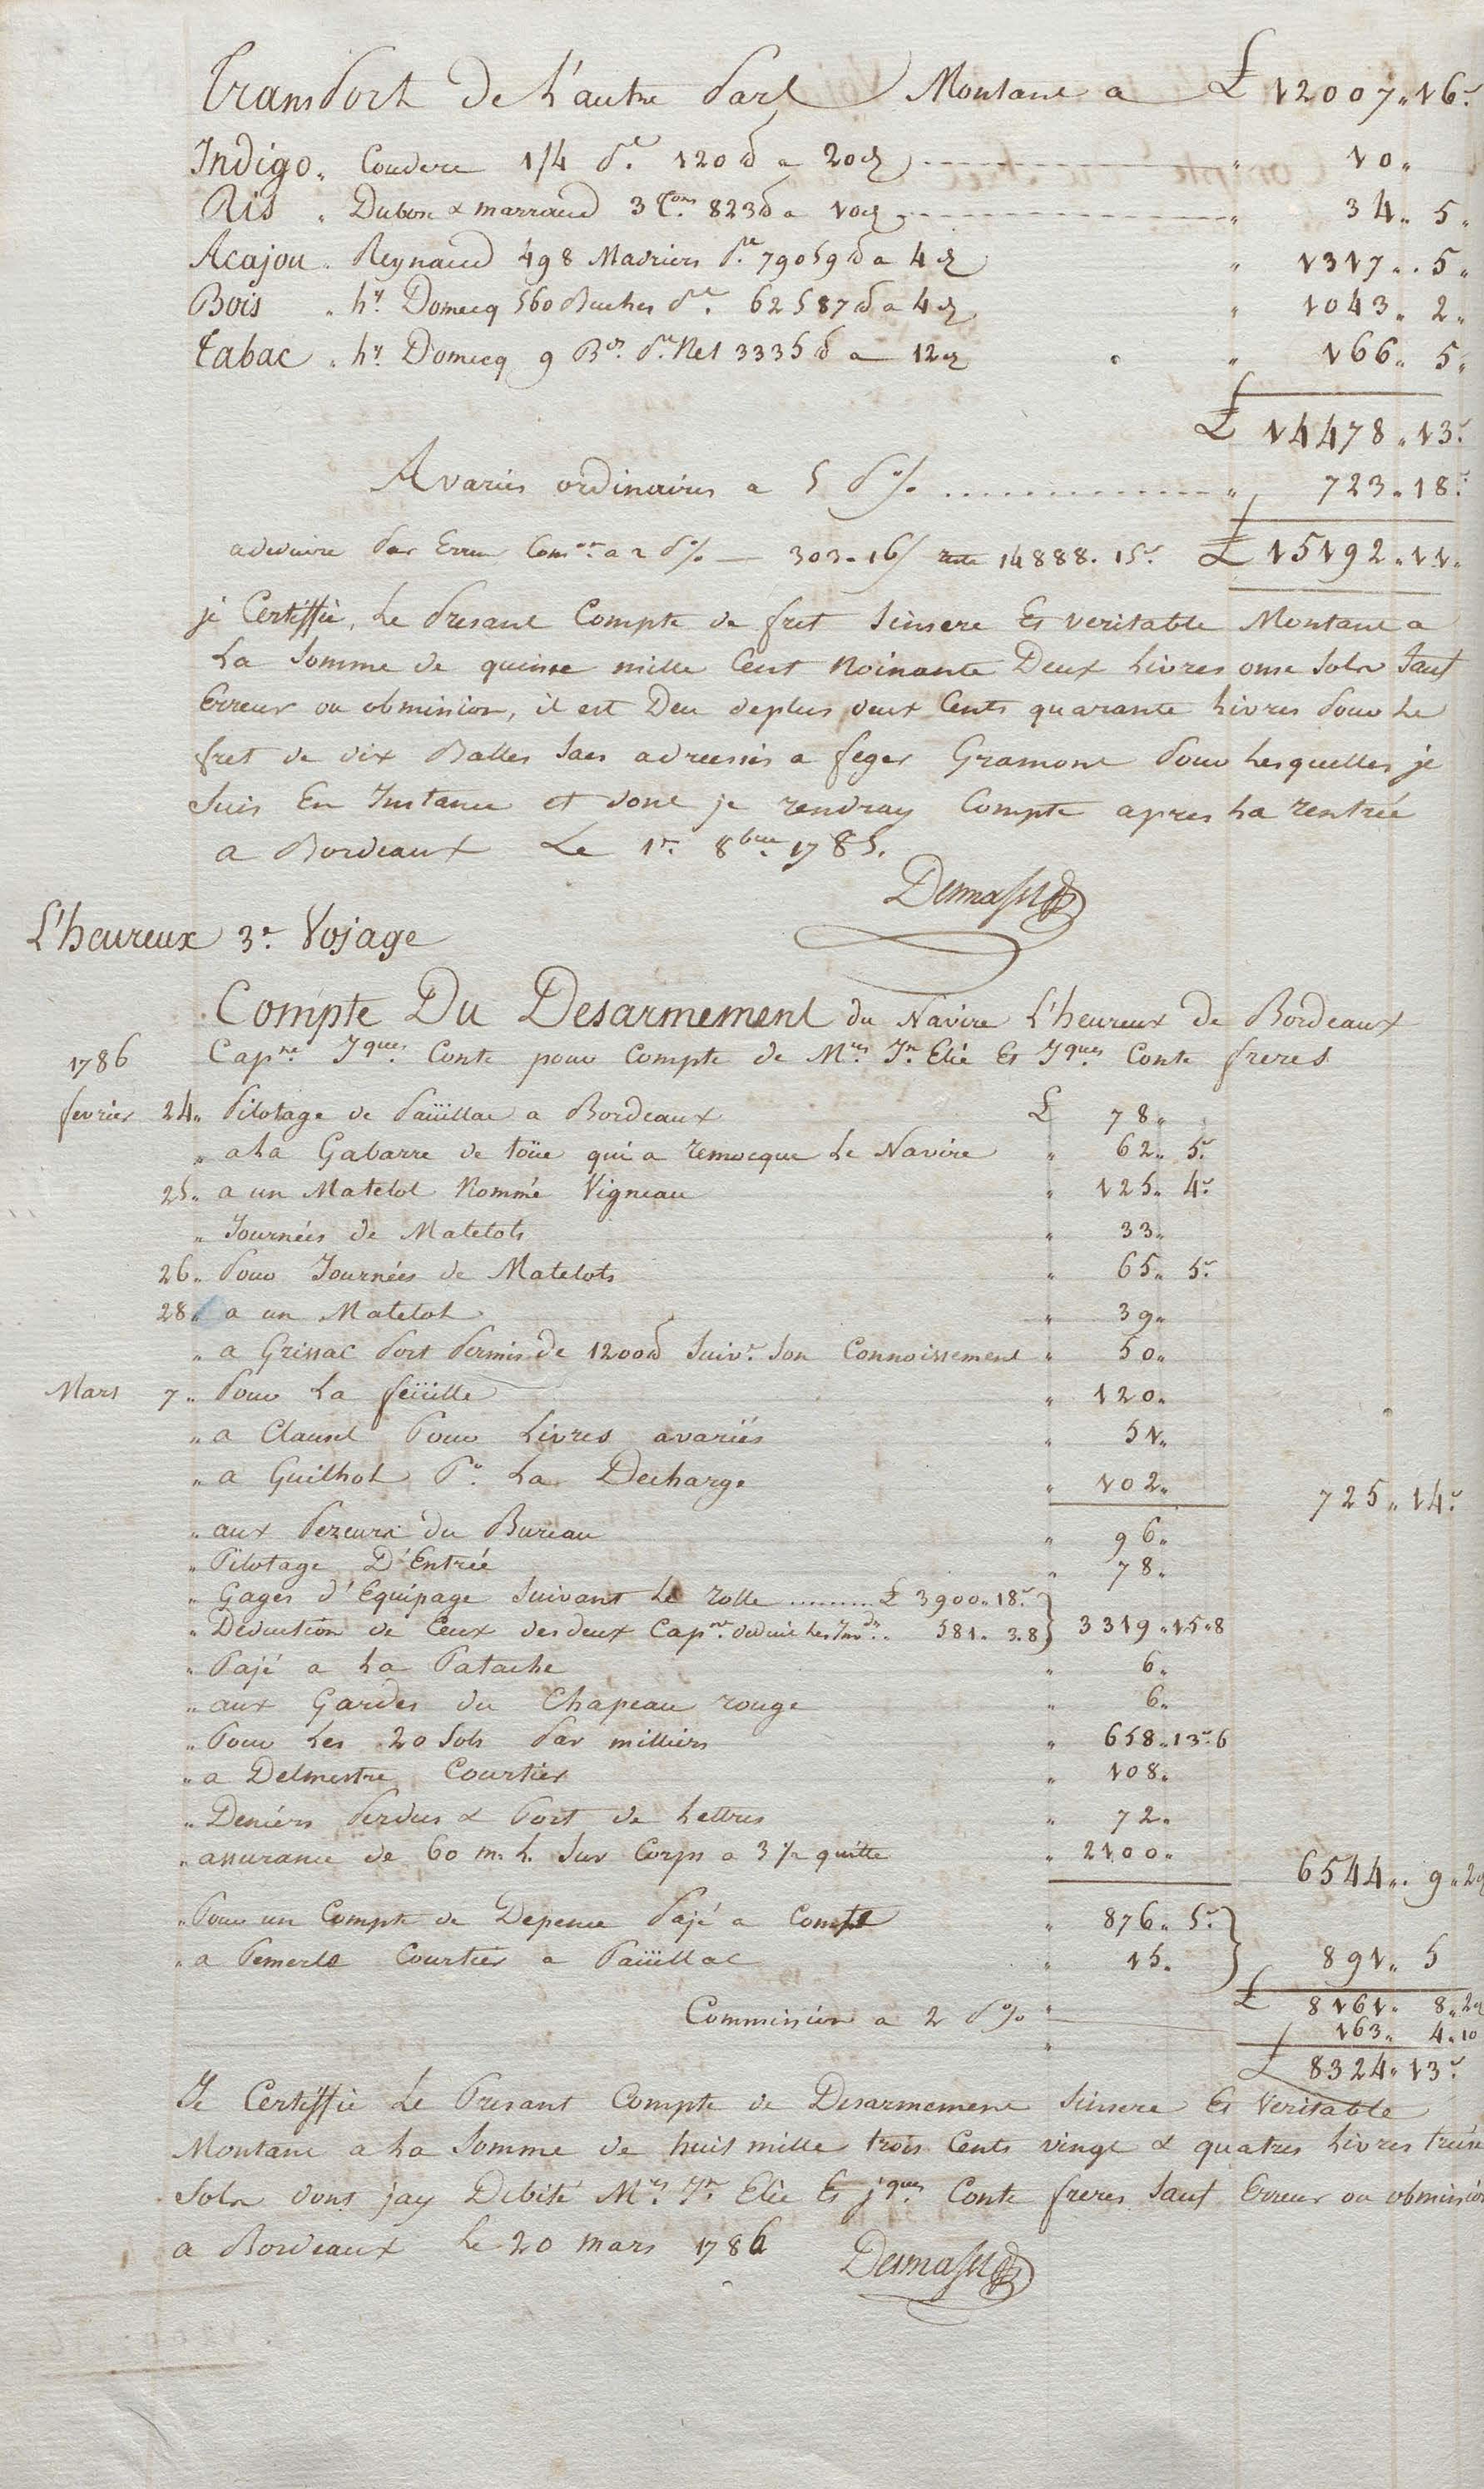 Transport De L'autre Part Montant a £ 12007 " 16s
Indigo " Couderc 1/4 Pt 120 ℔ a 20 d " 10 "
Ris " Dubon & marraud 3 Cons 823 ℔ a 10 d " 34 " 5 "
Acajou " Reynaud 498 Madriers Pt 79059 ℔ a 4 d " 1317 " 5 "
Bois " hy Domecq 560 Buches Pt 62587 ℔ a 4 d " 1043 " 2 "
Tabac " hy Domecq 9 Bts Pt Net 3335 ℔ a 12 d " 166 " 5 "
£ 14478 " 13s
Avaries ordinaires a 5 P% " 723 " 18s
a deduire Par Erreur Comon a 2 P% — 303 " 16 / reste 14888 " 15s £ 15192 " 11 "
je Certiffie, Le Presant Compte de fret Sinsere Et veritable Montant a
La Somme de quinse mille Cent Noinante Deux Livres onse Sols Sauf
Erreur ou obmission, il est Deu deplus deux Cents quarante Livres Pour Le
fret de dix Balles Sacs adressés a feger Gramont Pour Lesquelles je
Suis En Instance et dont je rendray Compte apres La rentrée
a Bordeaux Le 1er 8bre 1785.
L'heureux 3e Vojage
Compte Du Desarmement du Navire L'heureux de Bordeaux
1786 Capne Jques Conte pour Compte de Mrs Jn Elie Et Jques Conte freres
fevrier 24 " Pilotage de Paüillac a Bordeaux £ 78 "
" a La Gabarre de toüe qui a remocque Le Navire " 62 " 5s
25 " a un Matelot Nommé Vigneau " 125 " 4s
" Journées de Matelots " 33 "
26 " Pour Journées de Matelots " 65 " 5s
28 " a un Matelot " 39 "
" a Grissac Port Permis de 1200 ℔ Suivt Son Connoissement " 50 "
Mars 7 " Pour La feüille " 120 "
" a Clausel Pour Livres avariés " 51 "
" a Guilhot Pr La Decharge " 102 " 725 " 14s
" aux Pezeurs du Bureau " 96 "
" Pilotage D'Entrée " 78 "
" Gages d'Equipage Suivant Le rolle £ 3900 " 18s
" Deduction de Ceux des deux Capnes deduit Les Invdes " 581 " 3 " 8 } 3319 " 15 " 8
" Pajé a La Patache " 6 "
" aux Gardes du Chapeau rouge " 6 "
" Pour Les 20 Sols Par milliers " 658 " 13s 6
" a Delmestre Courtier " 108 "
" Deniérs Perdus & Port de Lettres " 72 "
" assurance de 60 m. L. Sur Corps a 3 1/2 quitte " 2100 " 6544 " 9 " 2d
" Pour un Compte de Depence Pajé a Comte " 876 " 5s
" a Pemerle Courtier a Paüillac " 15 " } 891 " 5
£ 8161 " 8 " 2d
Commission a 2 P% " 163 " 4 " 10
£ 8324 " 13s
Je Certiffie Le Presant Compte de Desarmement Sinsere Et Veritable
Montant a La Somme de huit mille trois Cents vingt & quatres Livres treise
Sols dont jay Debité Mrs Jn Elie Et jques Conte freres Sauf Erreur ou obmission
a Bordeaux Le 20 mars 1786